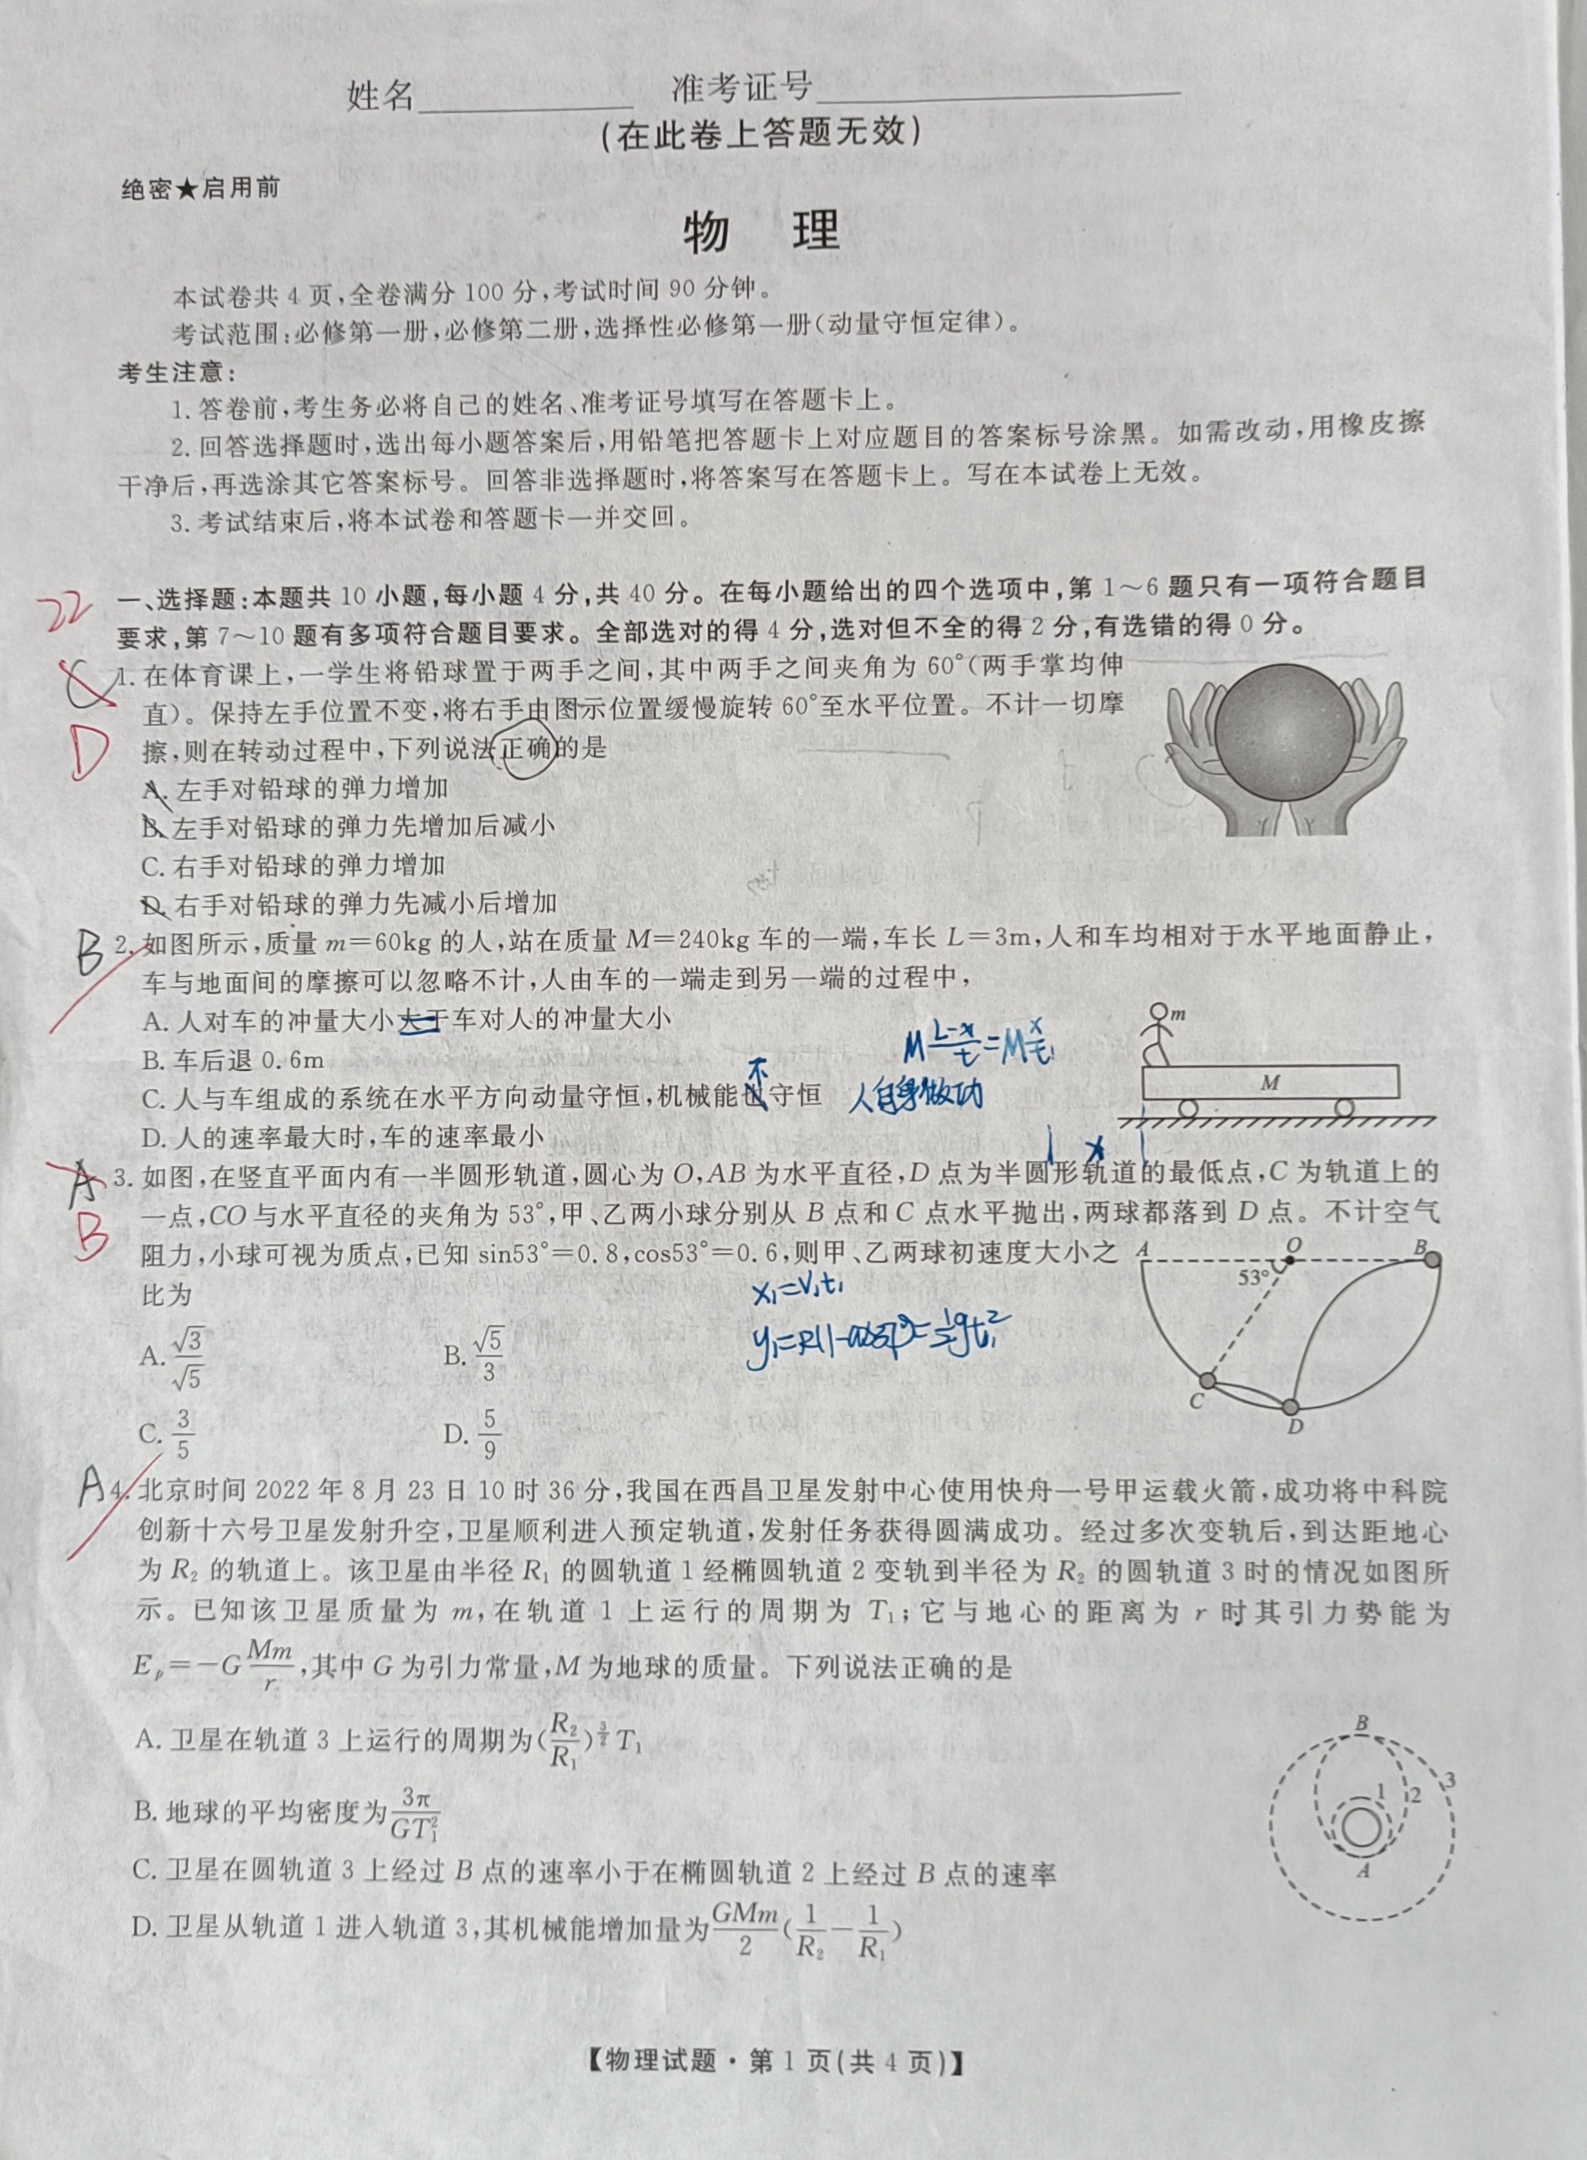 姓名 准考证号
(在此卷上答题无效)
绝密★启用前
物 理
本试卷共 4 页,全卷满分 100 分,考试时间 90 分钟。
考试范围:必修第一册,必修第二册,选择性必修第一册(动量守恒定律)。
考生注意:
1. 答卷前,考生务必将自己的姓名、准考证号填写在答题卡上。
2. 回答选择题时,选出每小题答案后,用铅笔把答题卡上对应题目的答案标号涂黑。如需改动,用橡皮擦
干净后,再选涂其它答案标号。回答非选择题时,将答案写在答题卡上。写在本试卷上无效。
3. 考试结束后,将本试卷和答题卡一并交回。
22
一、选择题:本题共 10 小题,每小题 4 分,共 40 分。在每小题给出的四个选项中,第 1～6 题只有一项符合题目
要求,第 7～10 题有多项符合题目要求。全部选对的得 4 分,选对但不全的得 2 分,有选错的得 0 分。
C 1. 在体育课上,一学生将铅球置于两手之间,其中两手之间夹角为 60°(两手掌均伸
直)。保持左手位置不变,将右手由图示位置缓慢旋转 60°至水平位置。不计一切摩
D 擦,则在转动过程中,下列说法正确的是
A. 左手对铅球的弹力增加
B. 左手对铅球的弹力先增加后减小
C. 右手对铅球的弹力增加
D. 右手对铅球的弹力先减小后增加
B 2. 如图所示,质量 m=60kg 的人,站在质量 M=240kg 车的一端,车长 L=3m,人和车均相对于水平地面静止,
车与地面间的摩擦可以忽略不计,人由车的一端走到另一端的过程中,
A. 人对车的冲量大小大于车对人的冲量大小
m
B. 车后退 0.6m
M (L-x)/t = M x/t₁
M
不
C. 人与车组成的系统在水平方向动量守恒,机械能也守恒 人自身做功
D. 人的速率最大时,车的速率最小
x
A 3. 如图,在竖直平面内有一半圆形轨道,圆心为 O,AB 为水平直径,D 点为半圆形轨道的最低点,C 为轨道上的
B 一点,CO 与水平直径的夹角为 53°,甲、乙两小球分别从 B 点和 C 点水平抛出,两球都落到 D 点。不计空气
阻力,小球可视为质点,已知 sin53°=0.8,cos53°=0.6,则甲、乙两球初速度大小之
比为
A O B
53°
C
D
x₁=v₁t₁
A. √3/√5 B. √5/3
C. 3/5 D. 5/9
A 4. 北京时间 2022 年 8 月 23 日 10 时 36 分,我国在西昌卫星发射中心使用快舟一号甲运载火箭,成功将中科院
创新十六号卫星发射升空,卫星顺利进入预定轨道,发射任务获得圆满成功。经过多次变轨后,到达距地心
为 R₂ 的轨道上。该卫星由半径 R₁ 的圆轨道 1 经椭圆轨道 2 变轨到半径为 R₂ 的圆轨道 3 时的情况如图所
示。已知该卫星质量为 m,在轨道 1 上运行的周期为 T₁;它与地心的距离为 r 时其引力势能为
Eₚ=-G Mm/r,其中 G 为引力常量,M 为地球的质量。下列说法正确的是
A. 卫星在轨道 3 上运行的周期为(R₂/R₁)^(3/2) T₁
B. 地球的平均密度为 3π/GT₁²
C. 卫星在圆轨道 3 上经过 B 点的速率小于在椭圆轨道 2 上经过 B 点的速率
D. 卫星从轨道 1 进入轨道 3,其机械能增加量为 GMm/2 (1/R₂ - 1/R₁)
B
3
1 2
A
【物理试题・第 1 页(共 4 页)】